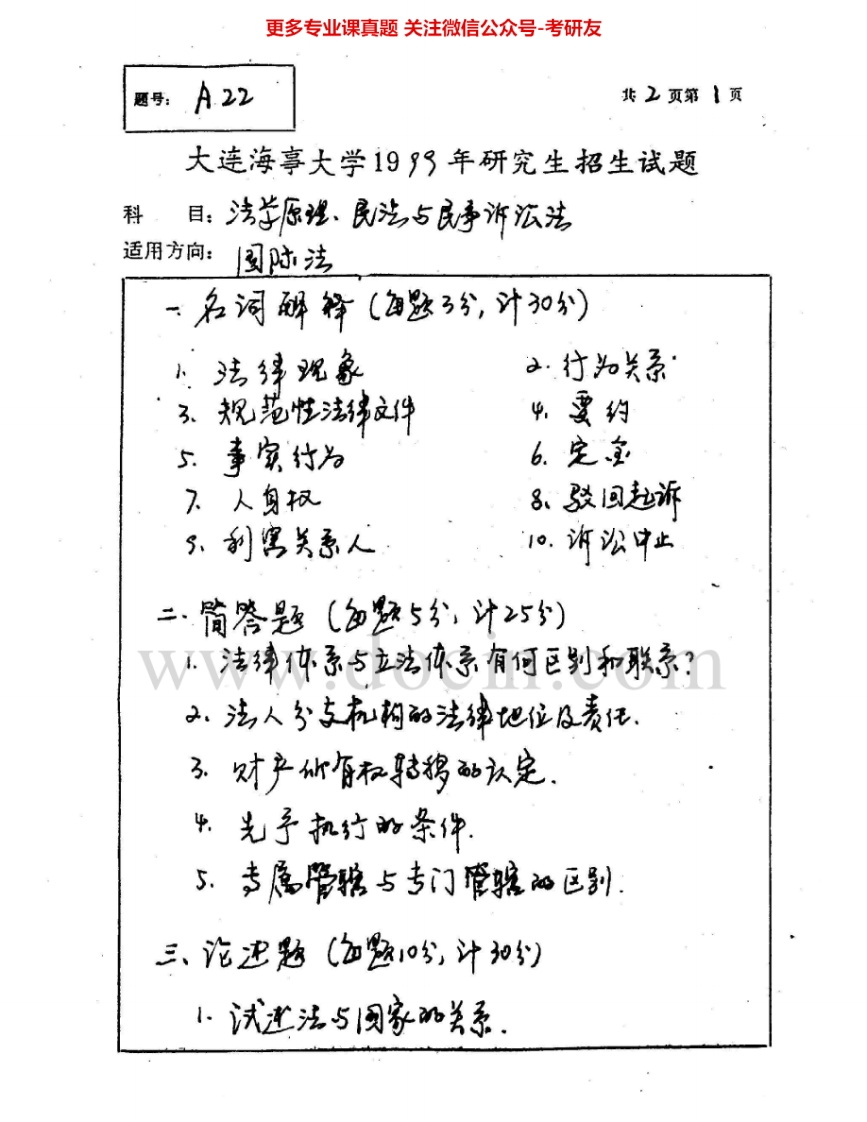 更多专业课真题 关注微信公众号-考研友
题号: A 22
共 2 页第 1 页
大连海事大学1999年研究生招生试题
科 目: 法学原理、民法与民事诉讼法
适用方向: 国际法
一、名词解释(每题3分,计30分)
1. 法律现象 2. 行为关系
3. 规范性法律文件 4. 要约
5. 事实行为 6. 定金
7. 人身权 8. 驳回起诉
9. 利害关系人 10. 诉讼中止
二、简答题(每题5分,计25分)
1. 法律体系与立法体系有何区别和联系?
www.docin.com
2. 法人分支机构的法律地位及责任.
3. 财产所有权转移的认定.
4. 先予执行的条件.
5. 专属管辖与专门管辖的区别.
三、论述题(每题10分,计30分)
1. 试述法与国家的关系.